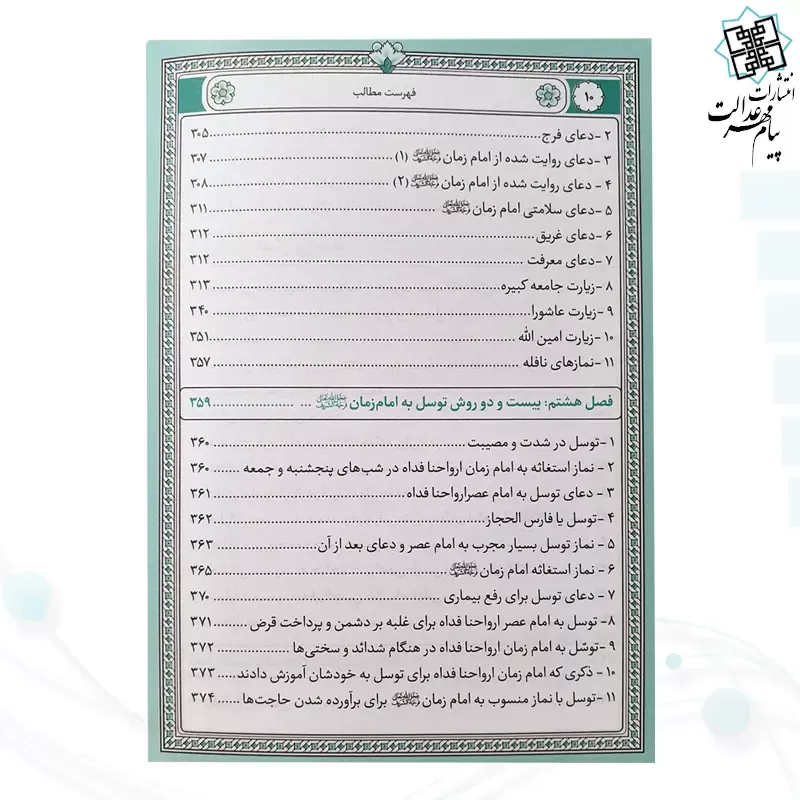 انتشارات
پیام مهر عدالت
۱۰
فهرست مطالب
۲-دعای فرج ........ ۳۰۵
۳-دعای روایت شده از امام زمان (۱) ........ ۳۰۷
۴- دعای روایت شده از امام زمان (۲) ........ ۳۰۸
۵-دعای سلامتی امام زمان ........ ۳۱۱
۶-دعای غریق ........ ۳۱۲
۷-دعای معرفت ........ ۳۱۲
۸-زیارت جامعه کبیره ........ ۳۱۳
۹-زیارت عاشورا ........ ۳۴۰
۱۰-زیارت امین الله ........ ۳۵۱
۱۱-نمازهای نافله ........ ۳۵۷
فصل هشتم: بیست و دو روش توسل به امام‌زمان ........ ۳۵۹
۱-توسل در شدت و مصیبت ........ ۳۶۰
۲- نماز استغاثه به امام زمان ارواحنا فداه در شب‌های پنجشنبه و جمعه ........ ۳۶۰
۳- دعای توسل به امام عصرارواحنا فداه ........ ۳۶۱
۴-توسل یا فارس الحجاز ........ ۳۶۲
۵- نماز توسل بسیار مجرب به امام عصر و دعای بعد از آن ........ ۳۶۳
۶- نماز استغاثه امام زمان ........ ۳۶۵
۷- دعای توسل برای رفع بیماری ........ ۳۷۰
۸- توسل به امام عصر ارواحنا فداه برای غلبه بر دشمن و پرداخت قرض ........ ۳۷۱
۹-توسّل به امام زمان ارواحنا فداه در هنگام شدائد و سختی‌ها ........ ۳۷۲
۱۰- ذکری که امام زمان ارواحنا فداه برای توسل به خودشان آموزش دادند ........ ۳۷۳
۱۱-توسل با نماز منسوب به امام زمان برای برآورده شدن حاجت‌ها ........ ۳۷۴